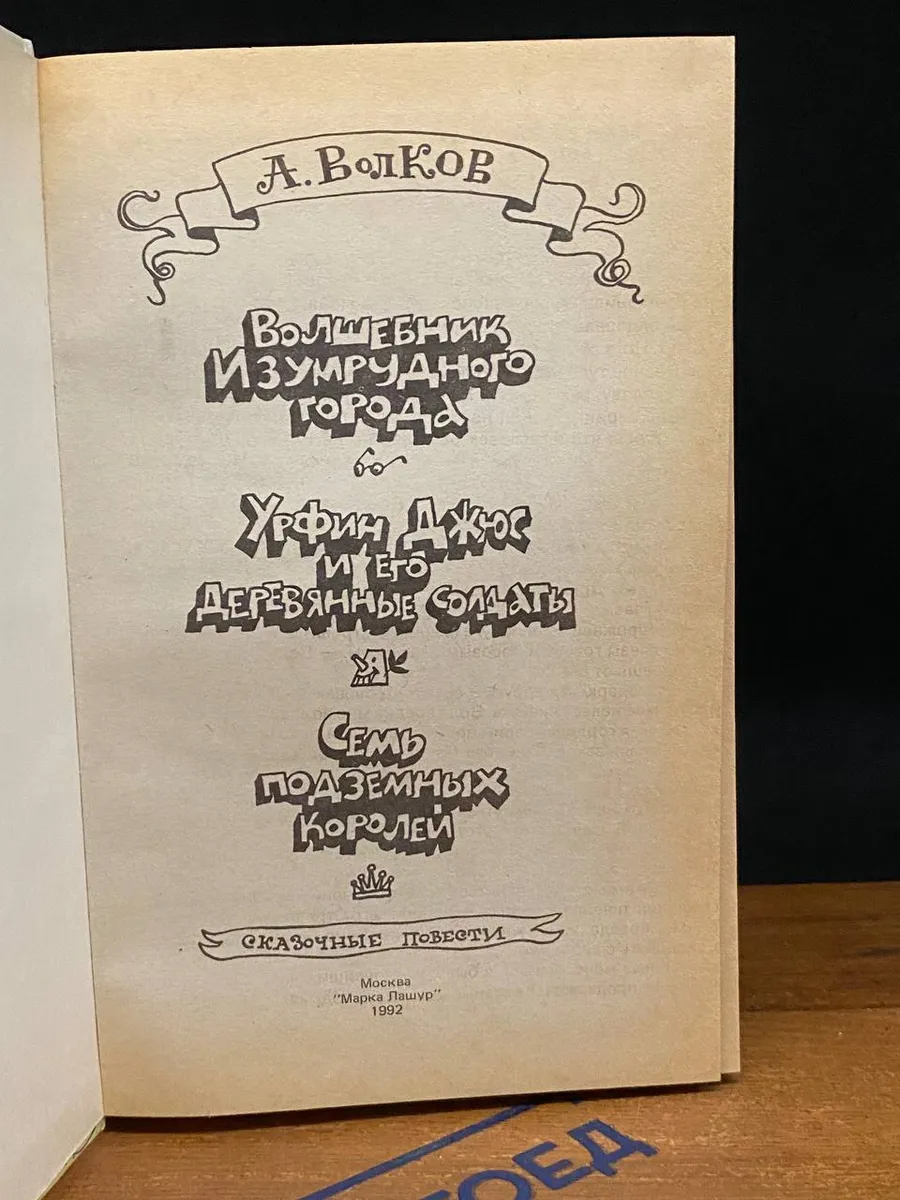 А. Волков
Волшебник
Изумрудного
города
Урфин Джюс
и его
деревянные солдаты
Семь
подземных
королей
сказочные повести
Москва
"Марка Лашур"
1992
ОЕД